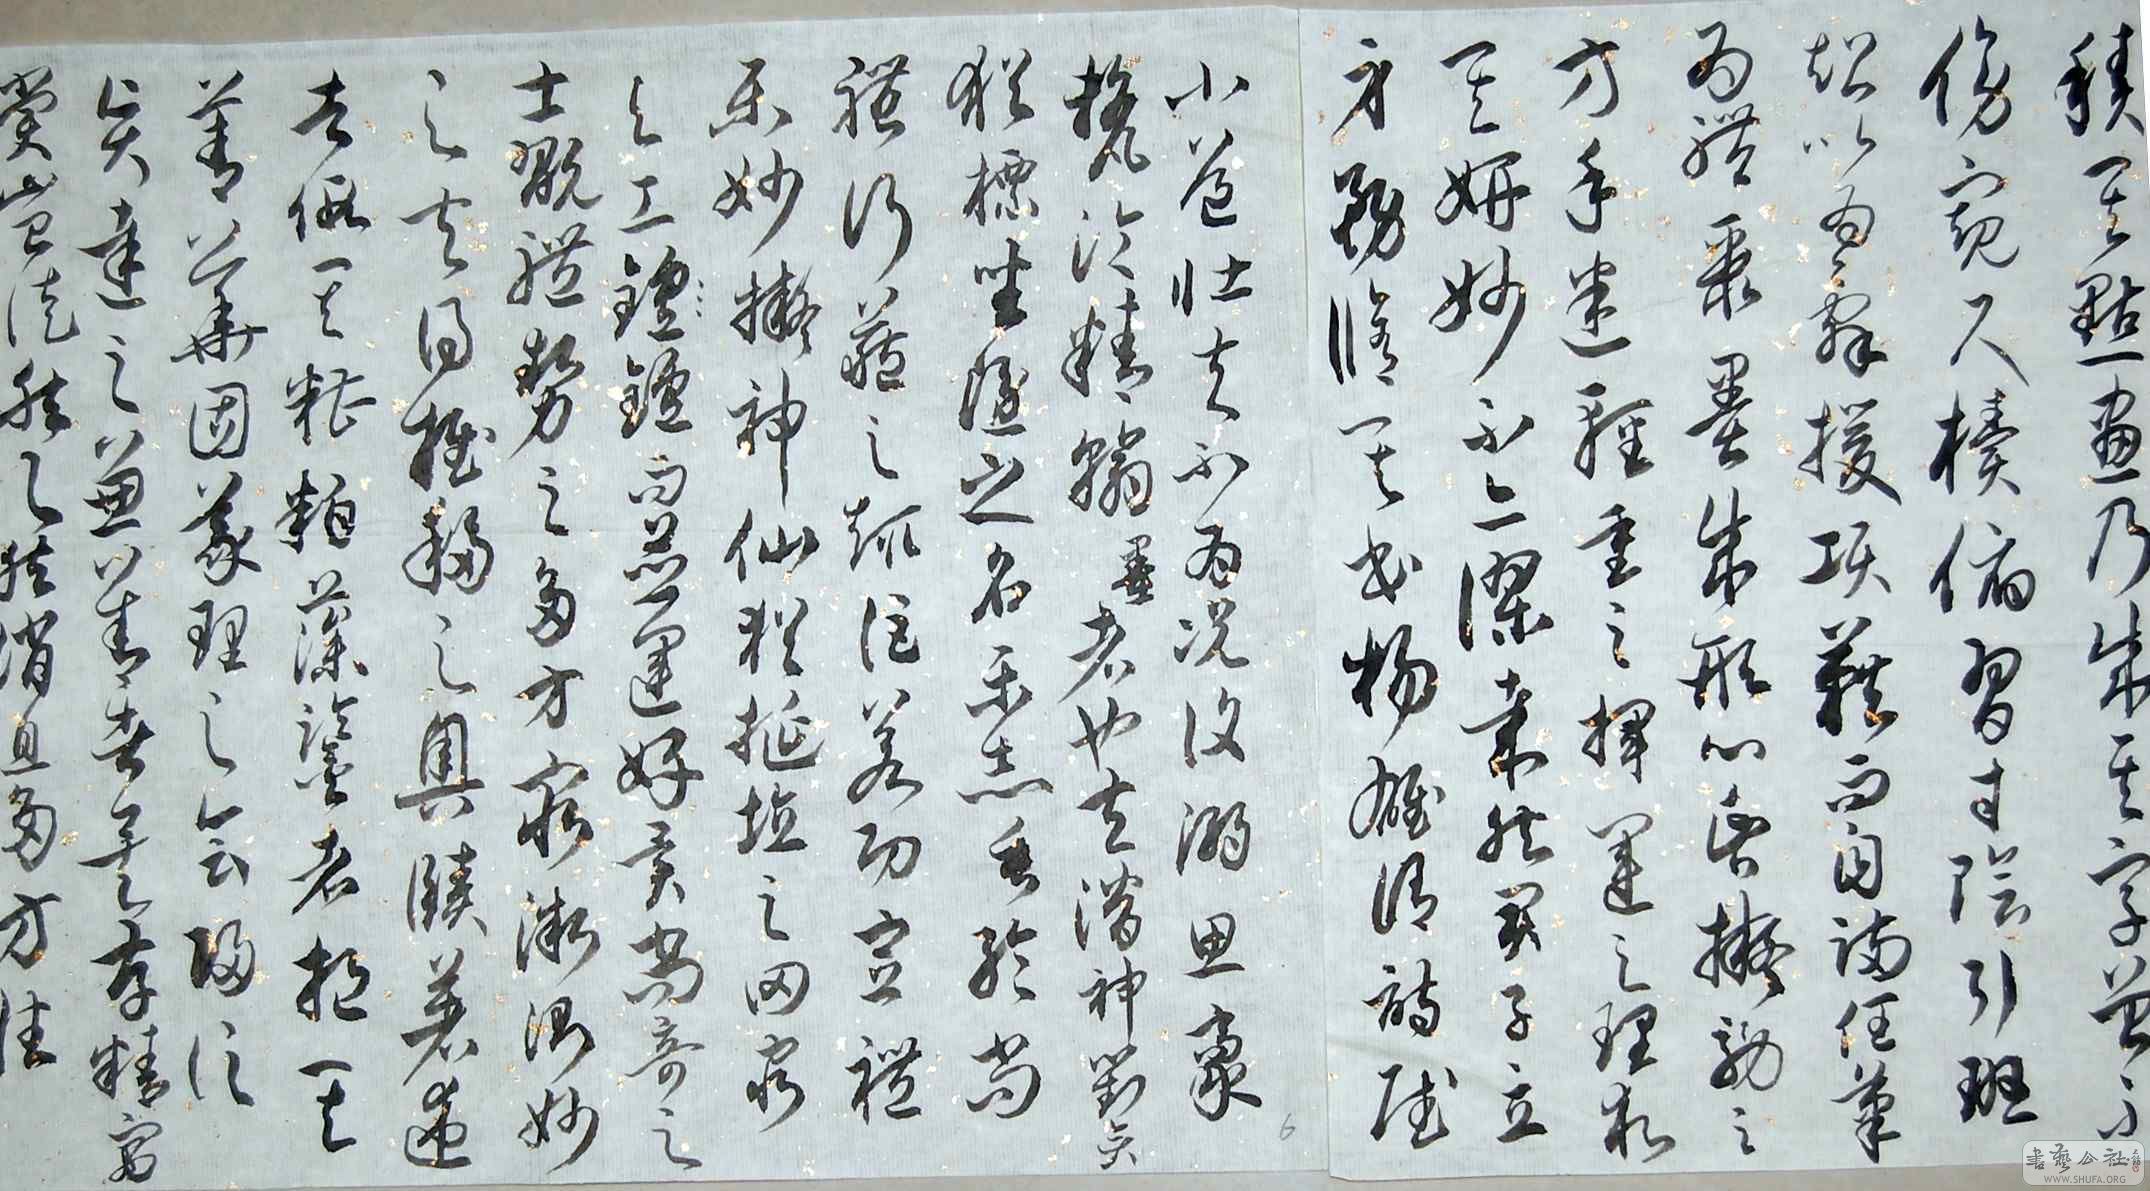 積其點畫乃成其字曾不
傍窺尺牘俯習寸陰引班
超以為辭援項籍而自滿任筆
為體聚墨成形心昏擬效之
方手迷輕重之揮運之理求
其妍妙不亦謬哉然君子立
身務脩其本揚雄謂詩賦
小道壯夫不為況復溺思豪
氂淪精翰墨者也夫潛神對奕
猶標坐隱之名樂志垂綸尚
體行藏之趣詎若功宣禮
樂妙擬神仙猶挻埴之罔窮
與工鑪鑪而並運好異尚奇之
士翫體勢之多方窮微測妙
之夫得推移之奧賾著述
者假其糟粕藻鑒者挹其
菁華固義理之會歸信
賢達之兼善者矣存精寓
賞豈徒然然消息多方性
6
書藝公社
WWW.SHUFA.ORG